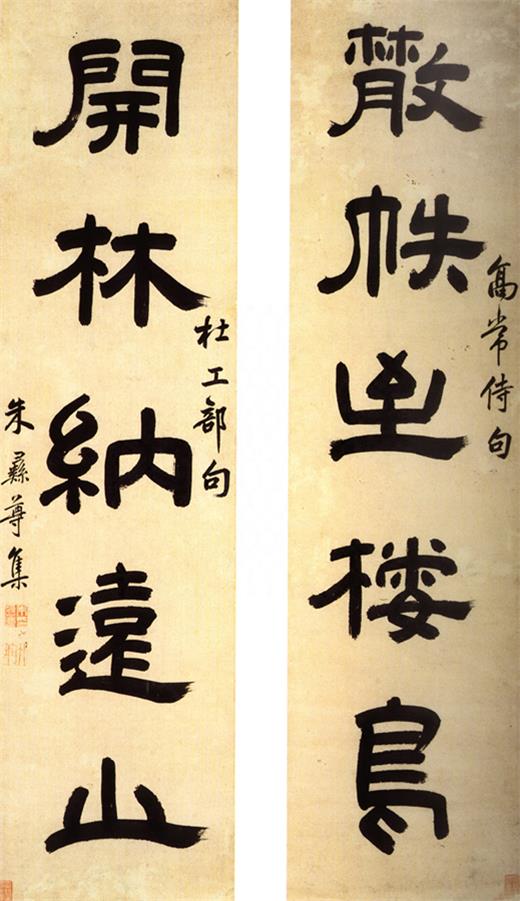 散帙至棲鳥
高常侍句
開林納遠山
杜工部句
朱彝尊集